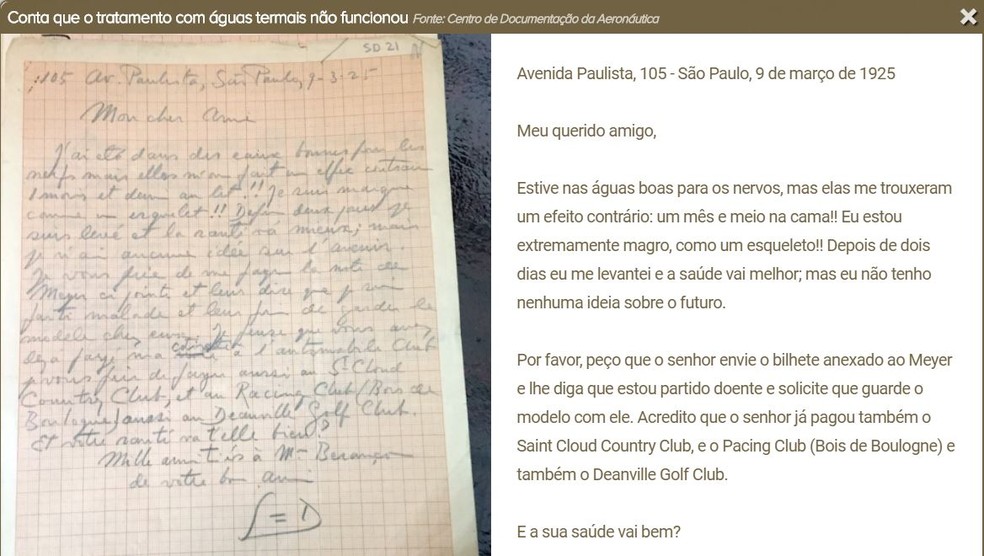 Conta que o tratamento com águas termais não funcionou Fonte: Centro de Documentação da Aeronáutica
SD 21
105 Av. Paulista, São Paulo, 9-3-25
Mon cher Ami
J'ai été dans des eaux bonnes pour les
nerfs mais elles m'on fait un effet contraire
1 mois et demi au lit!! Je suis maigre
comme un esquelet!! deux jours je
suis levé et la santé va mieux; mais
je n'ai aucune idée sur l'avenir.
Je vous prie de me payer la note de
Meyer ci jointe et leur dire que je suis
parti malade et leur de garder le
modele chez eux. Je pense que vous avez
deja payé ma à l'automobile Club
je vous prie de payer aussi au St Cloud
Country Club, et au Racing Club (Bois de
Boulogne) aussi au Deauville Golf Club.
Et votre santé va t'elle bien?
Mille amitiés à Mr
de votre bon Ami
= D
Avenida Paulista, 105 - São Paulo, 9 de março de 1925
Meu querido amigo,
Estive nas águas boas para os nervos, mas elas me trouxeram
um efeito contrário: um mês e meio na cama!! Eu estou
extremamente magro, como um esqueleto!! Depois de dois
dias eu me levantei e a saúde vai melhor; mas eu não tenho
nenhuma ideia sobre o futuro.
Por favor, peço que o senhor envie o bilhete anexado ao Meyer
e lhe diga que estou partido doente e solicite que guarde o
modelo com ele. Acredito que o senhor já pagou também o
Saint Cloud Country Club, e o Pacing Club (Bois de Boulogne) e
também o Deanville Golf Club.
E a sua saúde vai bem?